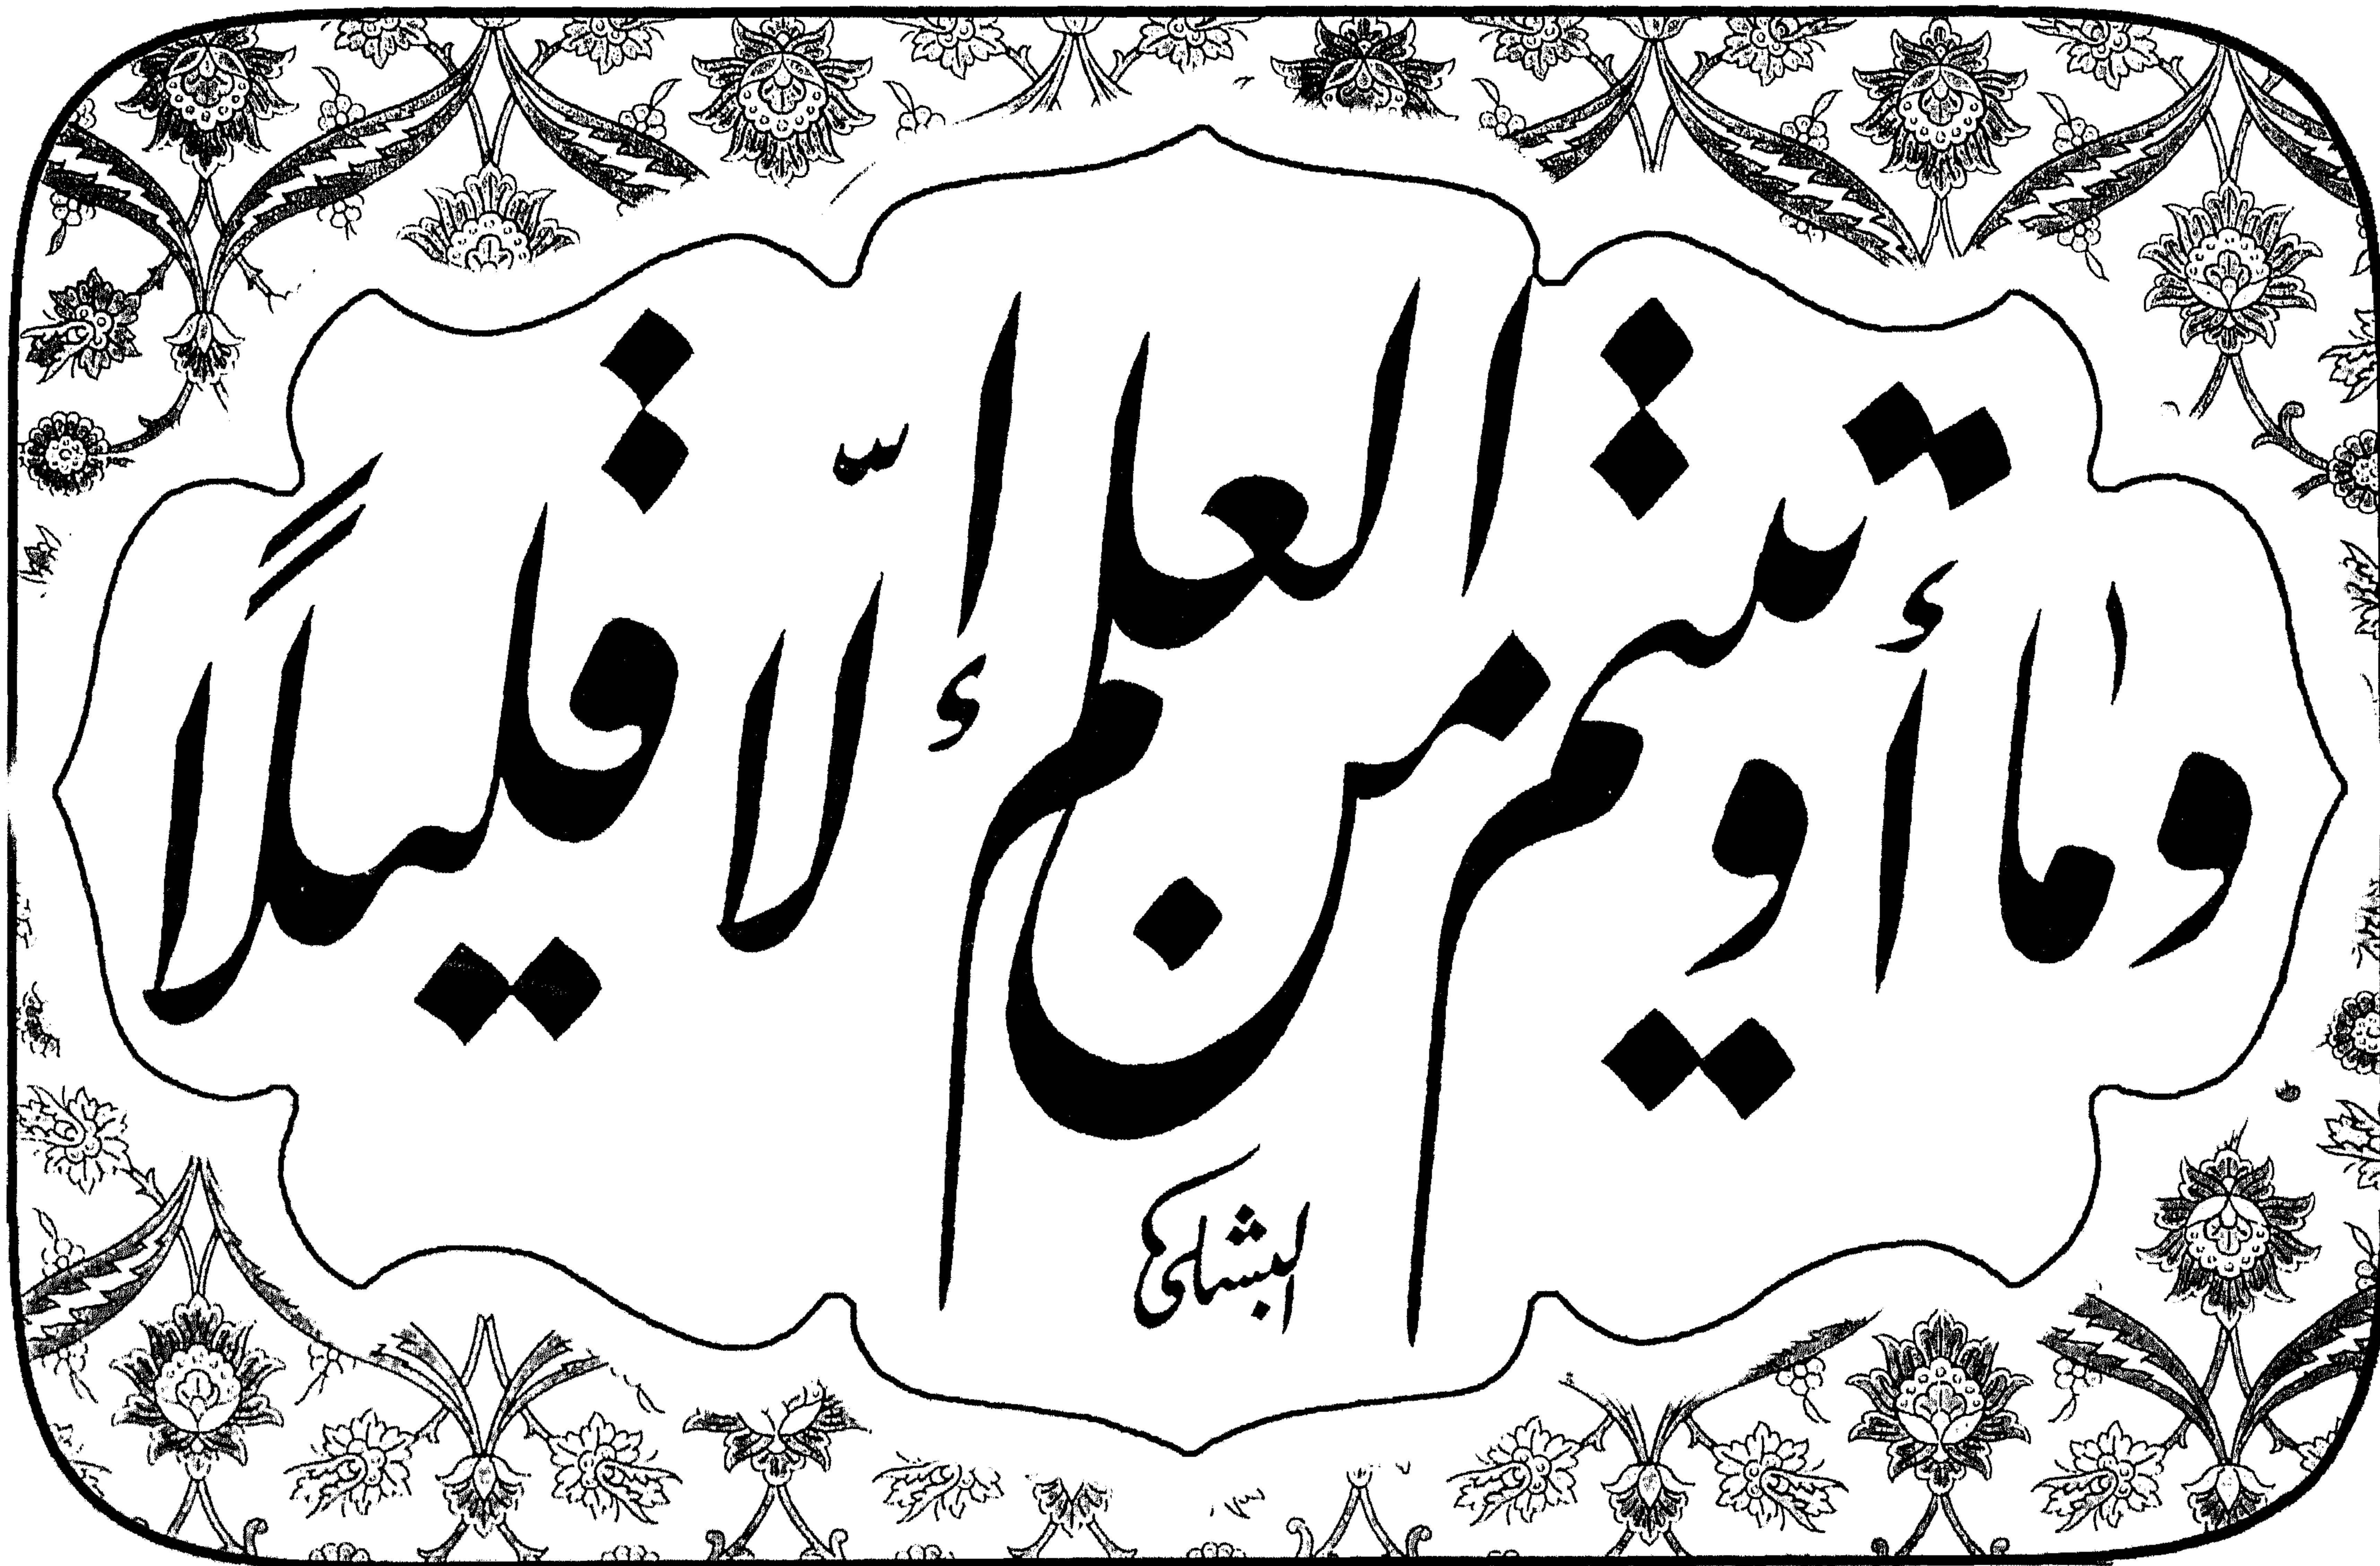 وما أوتيتم من العلم إلّا قليلاً